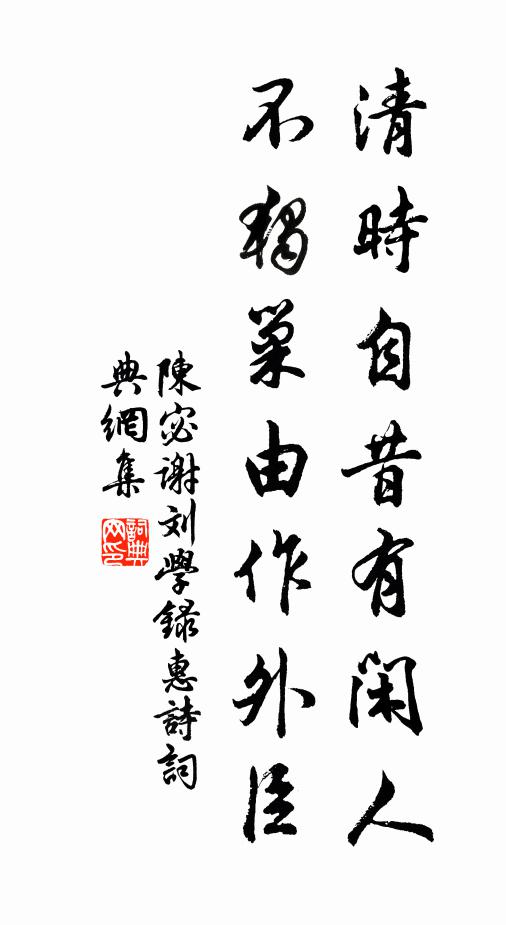 清時自昔有閑人
不獨巢由作外臣
陳宓謝刘學録惠詩詞
典網集
詞典
网印